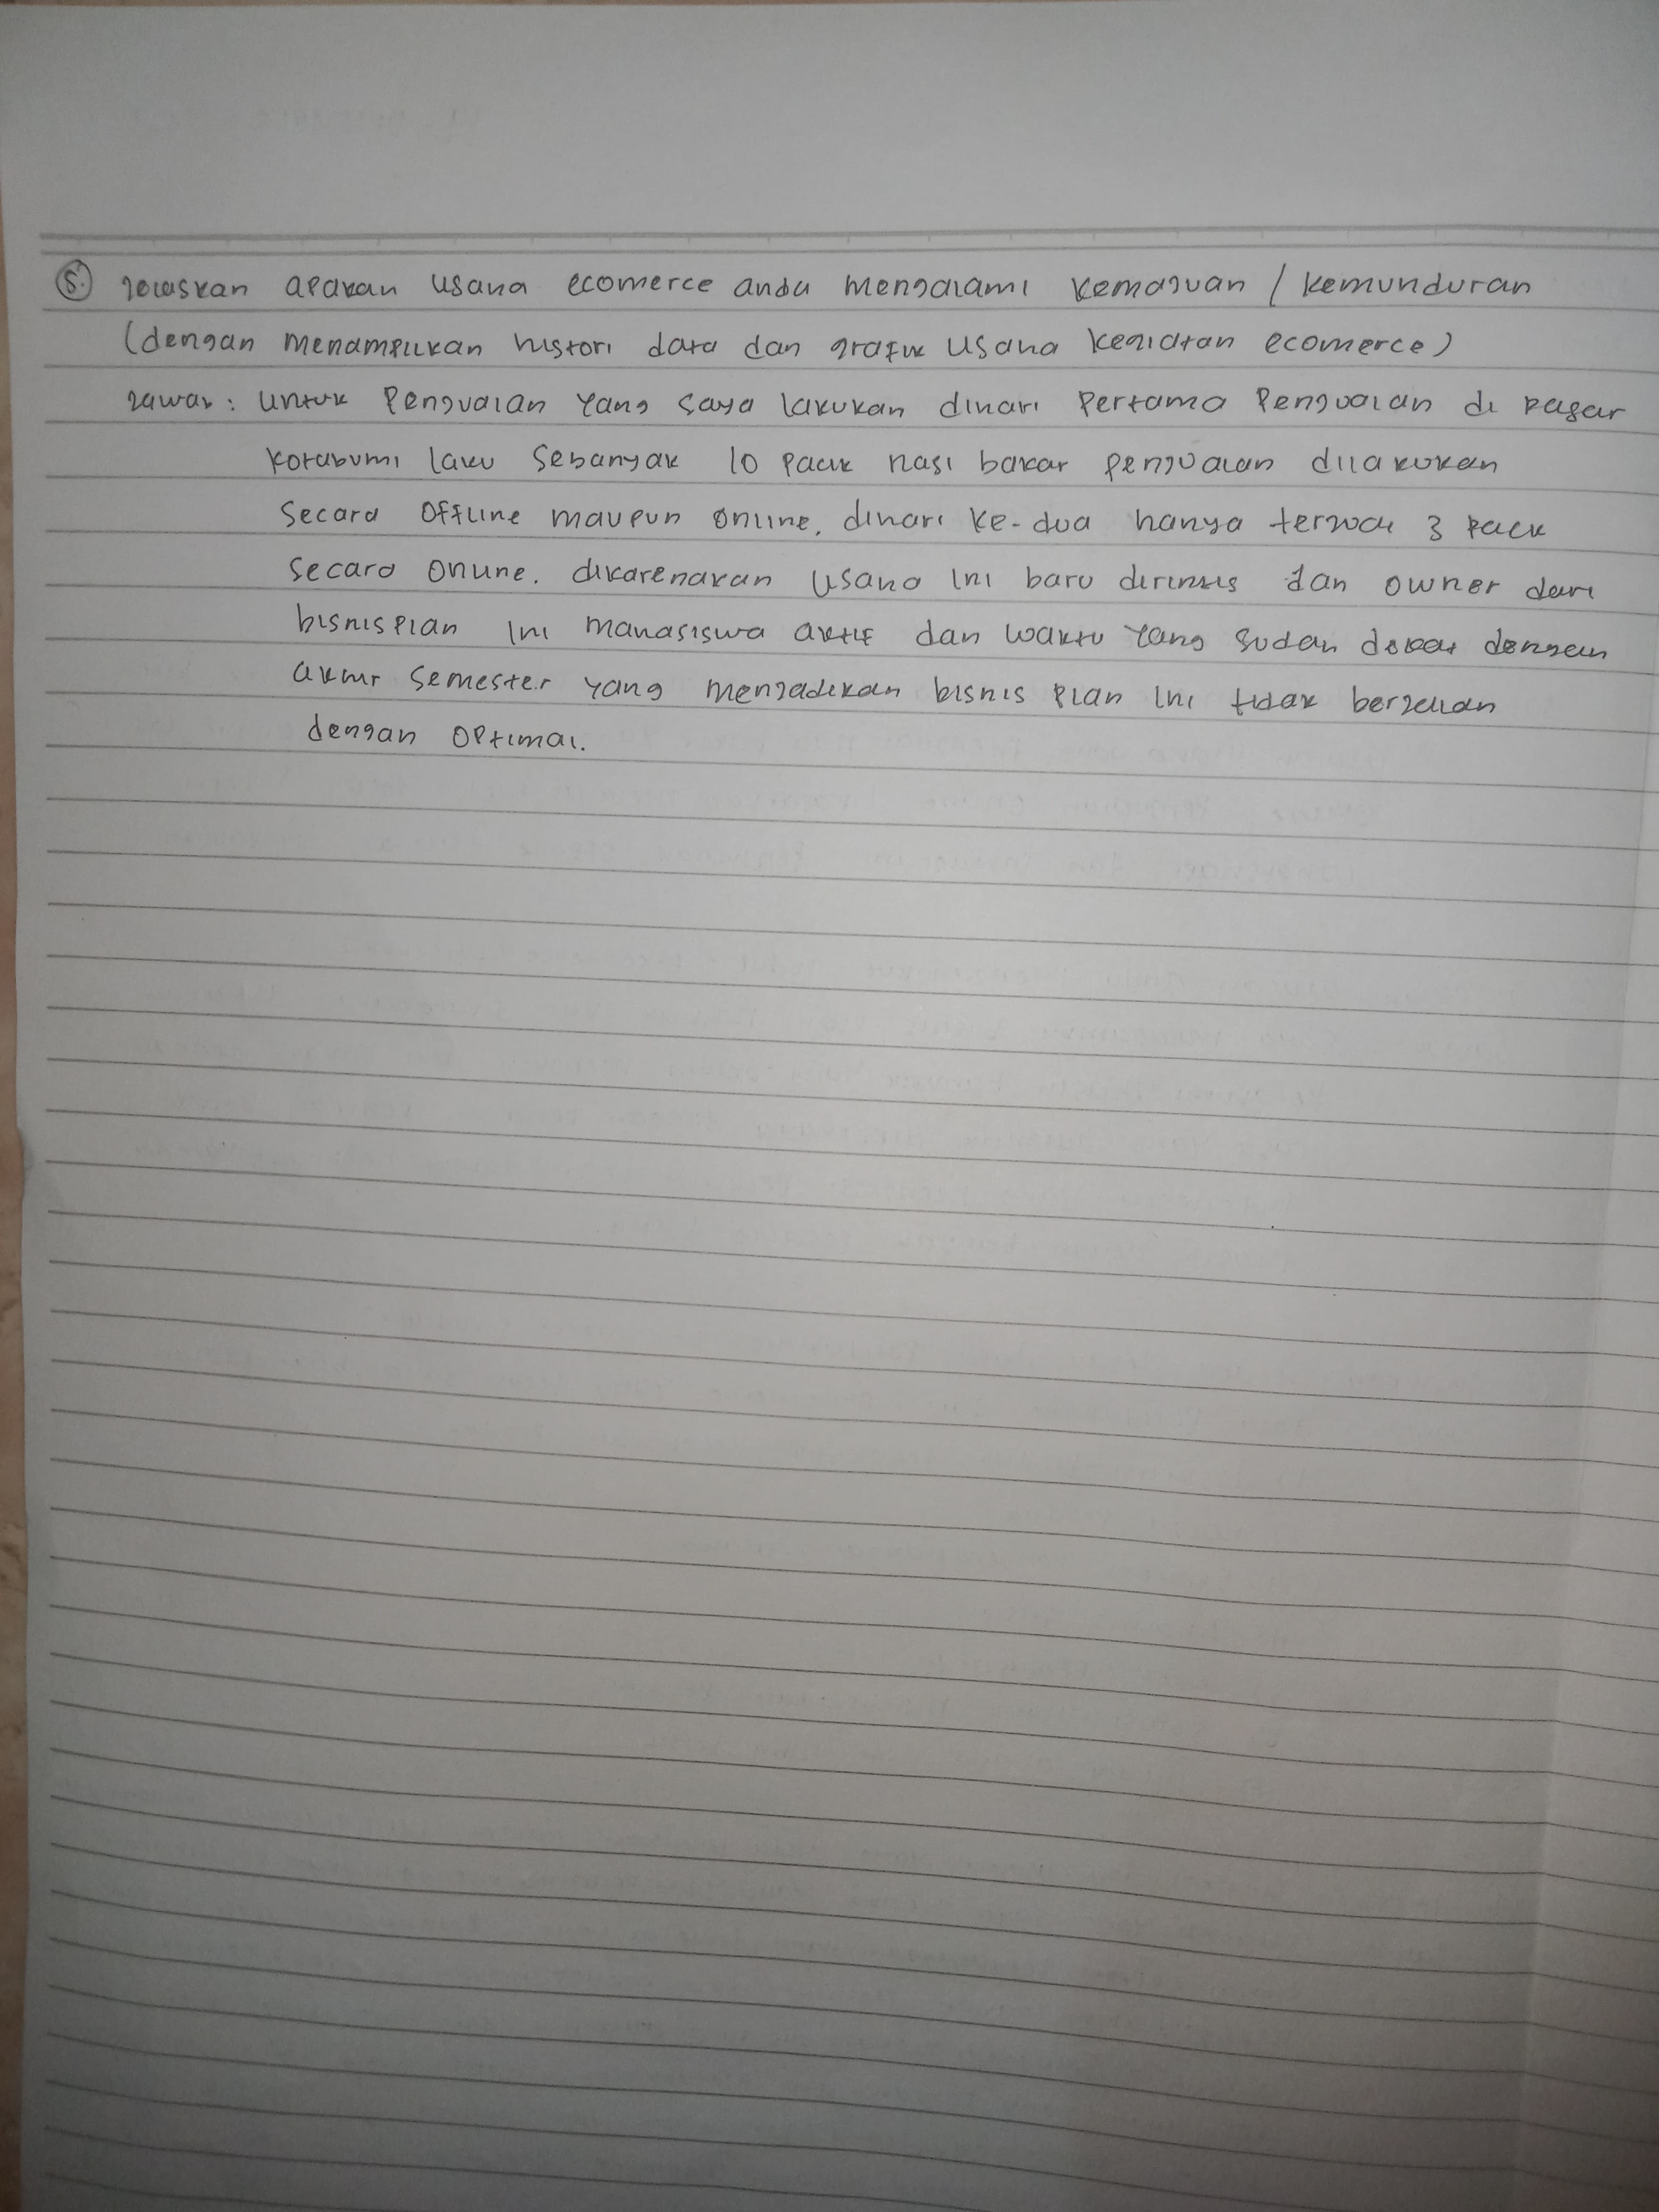 5. Jelaskan apakah usaha ecomerce anda mengalami kemajuan / kemunduran
(dengan menampilkan histori data dan grafik usaha kegiatan ecomerce)
Jawab : Untuk Penjualan yang saya lakukan dihari Pertama Penjualan di pasar
kotabumi laku sebanyak 10 pack nasi bakar penjualan dilakukan
secara offline maupun online. dihari ke-dua hanya terjual 3 pack
secara online. dikarenakan usaha ini baru dirintis dan owner dari
bisnisplan ini mahasiswa aktif dan waktu yang sudah dekat dengan
akhir semester yang menjadikan bisnis plan ini tidak berjalan
dengan optimal.